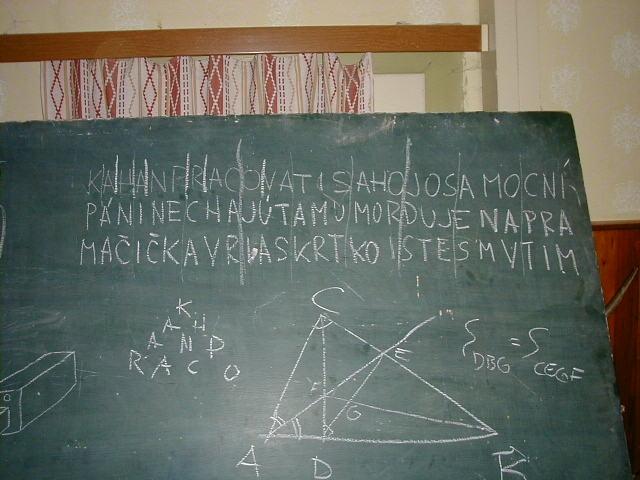 KAHANPRACOVATISAHOJOSAMOCNÍ
PÁNINECHAJÚTAMUMORDUJENAPRA
MAČIČKAVRLASKRTKOISTESMVTIM
K
A H
A N P
R A C O
C
E
F
G
A D B
∫DBG = ∫CEGF